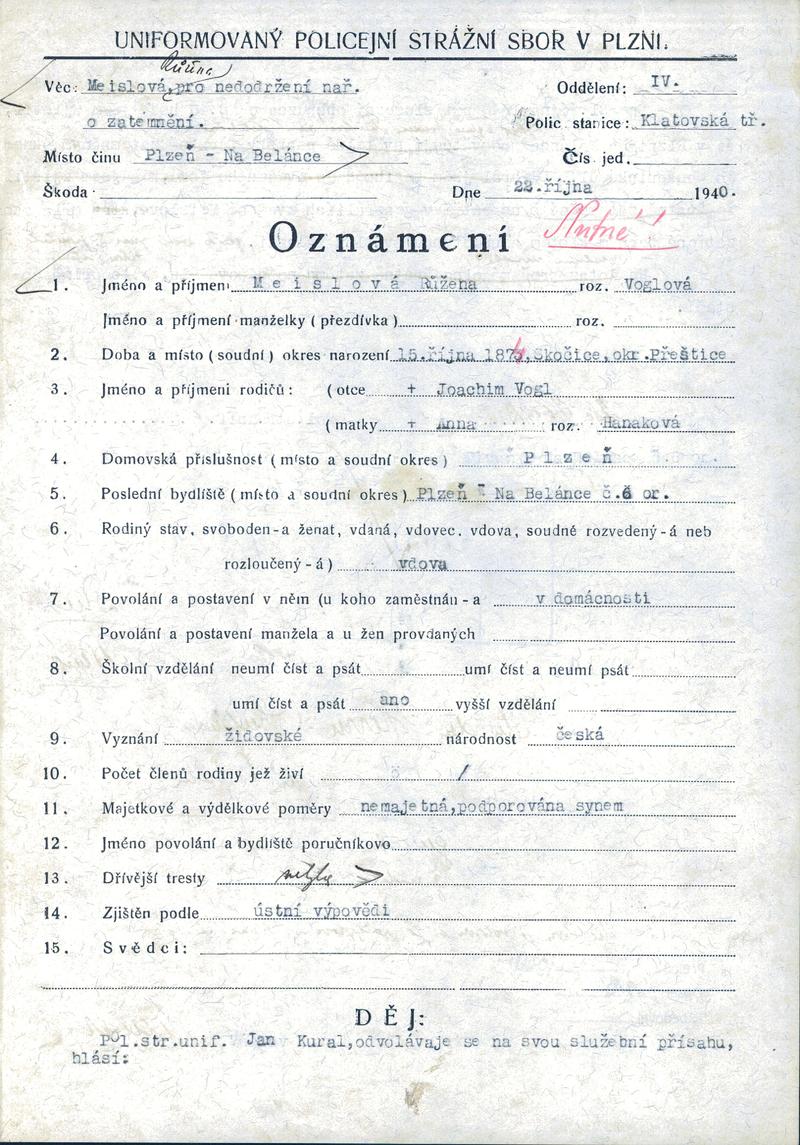 UNIFORMOVANÝ POLICEJNÍ STRÁŽNÍ SBOR V PLZNI.
Růžena
Věc: Meislová, pro nedodržení nař. Oddělení: IV.
o zatemnění. Polic stanice: Klatovská tř.
Místo činu Plzeň - Na Belánce Čís jed.
Škoda Dne 22.října 1940.
Oznámení Nutné!
1. Jméno a příjmení Meislová Růžena roz. Voglová
Jméno a příjmení manželky (přezdívka) roz.
2. Doba a místo (soudní) okres narození 15.října 1874, Skočice, okr.Přeštice
3. Jméno a příjmeni rodičů: (otce + Joachim Vogl
(matky + Anna roz. Hanaková
4. Domovská příslušnost (místo a soudní okres) Plzeň
5. Poslední bydliště (místo a soudní okres) Plzeň - Na Belánce č.6 or.
6. Rodiný stav, svoboden-a ženat, vdaná, vdovec, vdova, soudně rozvedený-á neb
rozloučený-á) vdova
7. Povolání a postavení v něm (u koho zaměstnán-a v domácnosti
Povolání a postavení manžela a u žen provdaných
8. Školní vzdělání neumí číst a psát umí číst a neumí psát
umí číst a psát ano vyšší vzdělání
9. Vyznání židovské národnost česká
10. Počet členů rodiny jež živí /
11. Majetkové a výdělkové poměry nemajetná,podporována synem
12. Jméno povolání a bydliště poručníkovo
13. Dřívější tresty
14. Zjištěn podle ústní výpovědi
15. Svědci:
DĚJ:
Pol.str.unif. Jan Kural,odvolávaje se na svou služební přísahu,
hlásí: